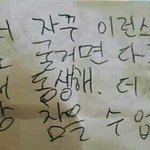 자꾸 이런스
굴거면 다
동생해. 더
잠을 수 업